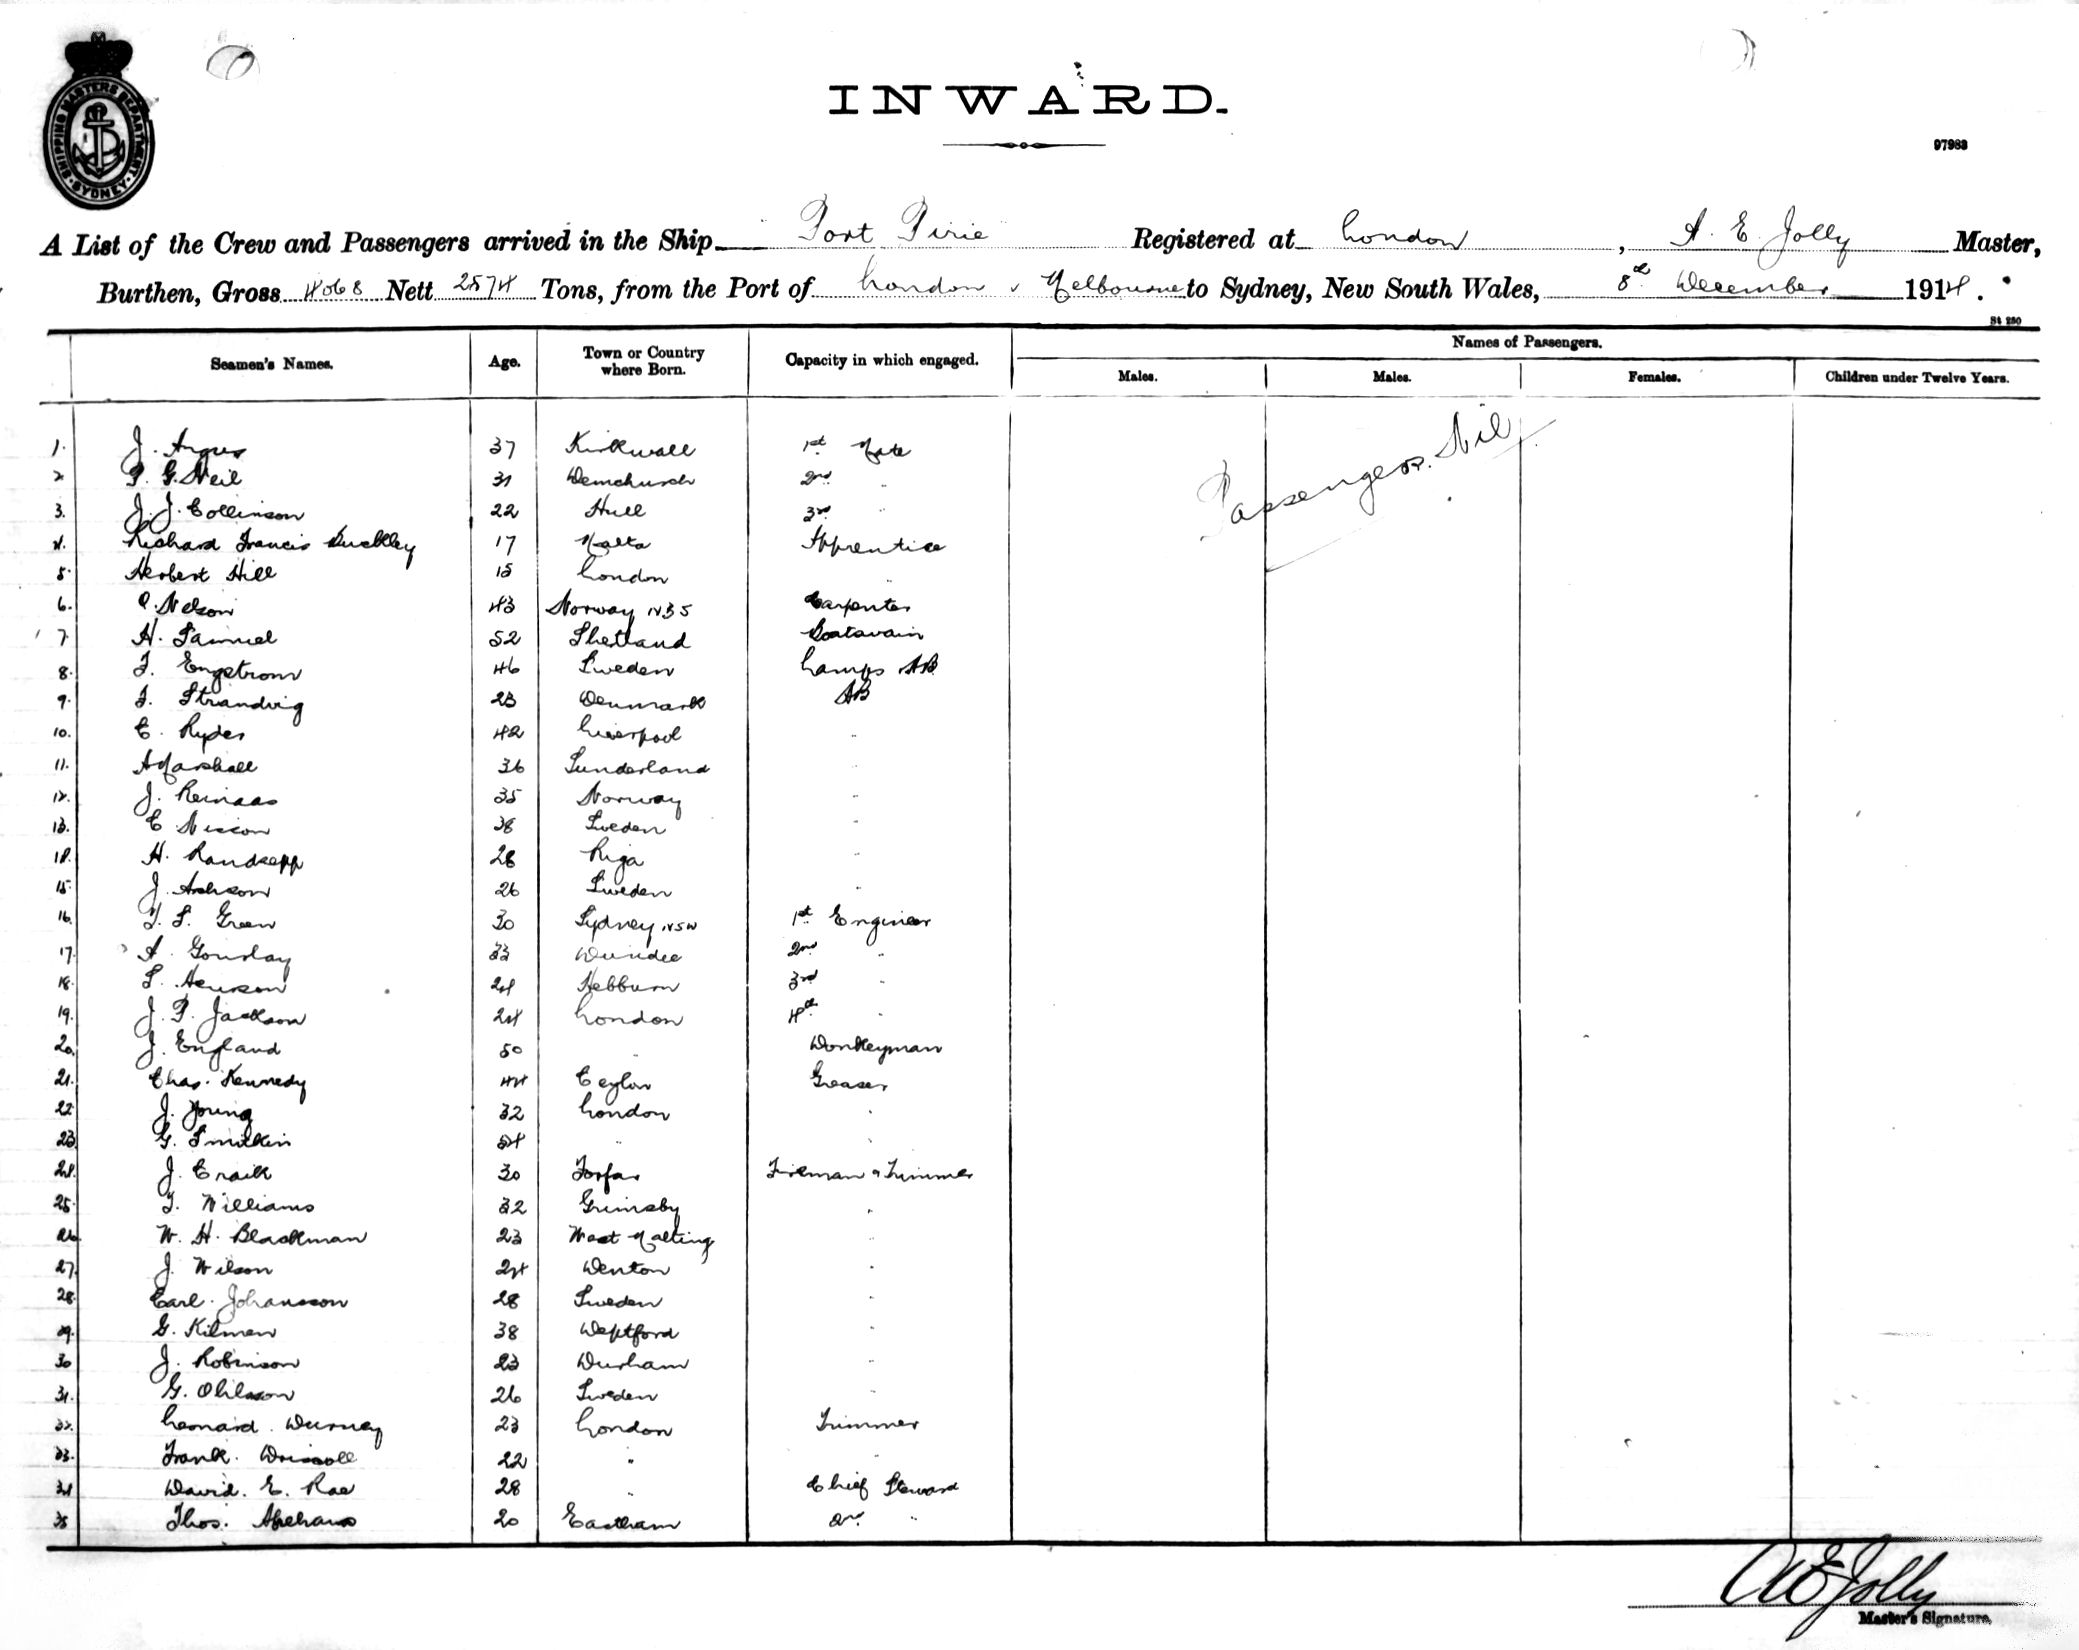 SHIPPING MASTERS DEPARTMENT SYDNEY
INWARD.
97983
A List of the Crew and Passengers arrived in the Ship Port Pirie Registered at London, A. E. Jolly Master,
Burthen, Gross 4068 Nett 2574 Tons, from the Port of London & Melbourne to Sydney, New South Wales, 8th December 1914.
St 250
Seamen's Names. Age. Town or Country where Born. Capacity in which engaged. Names of Passengers.
Males. Males. Females. Children under Twelve Years.
Passengers. Nil
1. J. Angus 37 Kirkwall 1st Mate
2 P. G. Neil 31 Demchurch 2nd "
3. J. J. Collinson 22 Hull 3rd "
4. Richard Francis Buckley 17 Malta Apprentice
5 Herbert Hill 18 London "
6. Nelson 43 Norway NBS Carpenter
7. H. Samuel 52 Shetland Boatswain
8. F. Engstrom 46 Sweden Lamps AB
9. F. Strandvig 23 Denmark AB
10. E. Ryder 42 Liverpool "
11. A Marshall 36 Sunderland "
12. J. Reinaas 35 Norway "
13. E. Nisson 38 Sweden "
14. H. Randsepp 28 Riga "
15. J. 26 Sweden "
16. T. S. Green 30 Sydney NSW 1st Engineer
17. A. Gourlay 33 Dundee 2nd "
18. S. Henrson 24 Hebburn 3rd "
19. J. P. Jackson 24 London 4th "
20. J. England 50 " Donkeyman
21. Chas. Kennedy 44 Ceylon Greaser
22 J. Young 32 London "
23. G. Smitkin 24 " "
24. J. Craik 30 Forfar Fireman & Trimmer
25. T. Williams 32 Grimsby "
26. W. H. Blackman 23 West Malling "
27. J. Wilson 24 Denton "
28. Carl. Johansson 28 Sweden "
29. G. Kilmen 38 Deptford "
30 J. Robinson 23 Durham "
31. G. Ohlsson 26 Sweden "
32. Leonard. Durney 23 London Trimmer
33. Frank. Driscoll 22 "
34 David. E. Rae 28 " Chief Steward
35 Thos. 20 Eastham 2nd "
A E Jolly
Master's Signature.